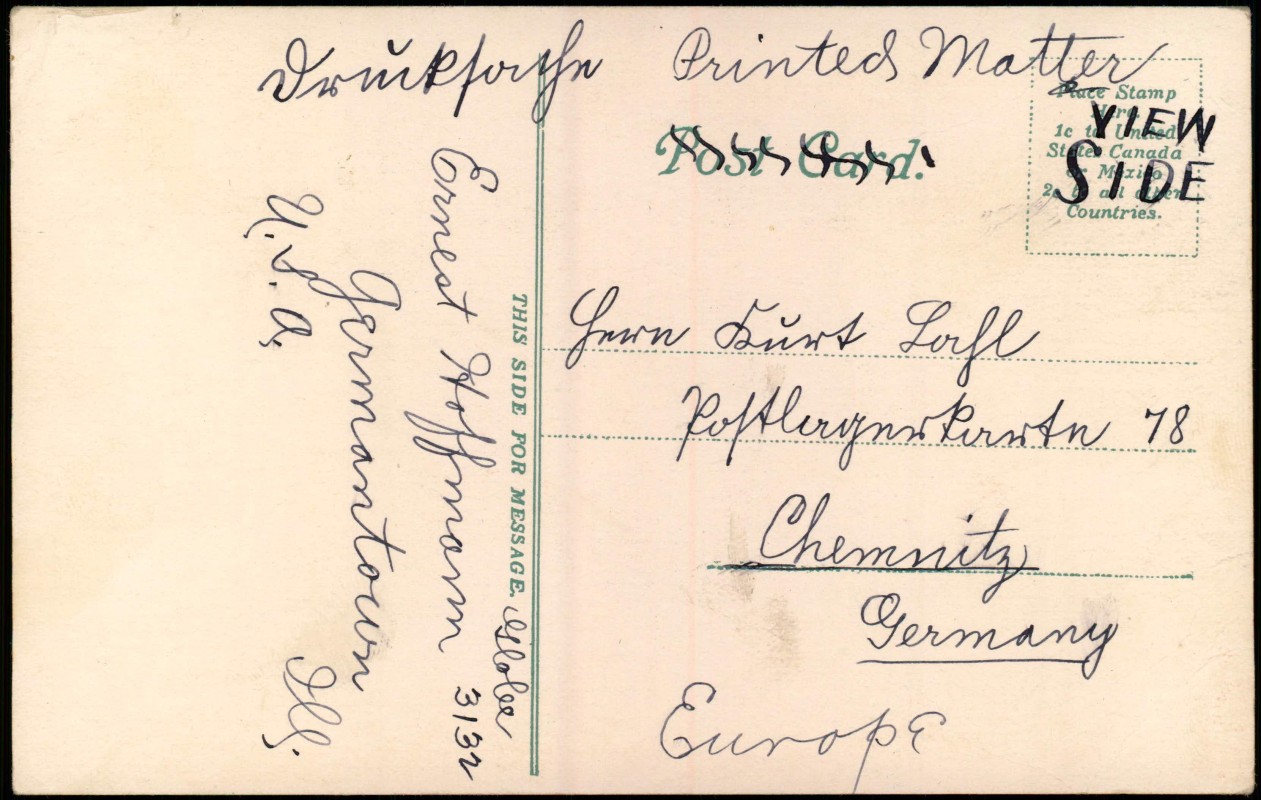 Drucksache Printed Matter
Post Card.
Place Stamp
Here
1c to United
States Canada
or Mexico
2c to all other
Countries.
VIEW
SIDE
Herrn Kurt Lahl
Postlagerkarte 78
Chemnitz
Germany
Europe
THIS SIDE FOR MESSAGE.
Globe
3132
Ernest Hoffmann
Germantown
Ill.
U.S.A.